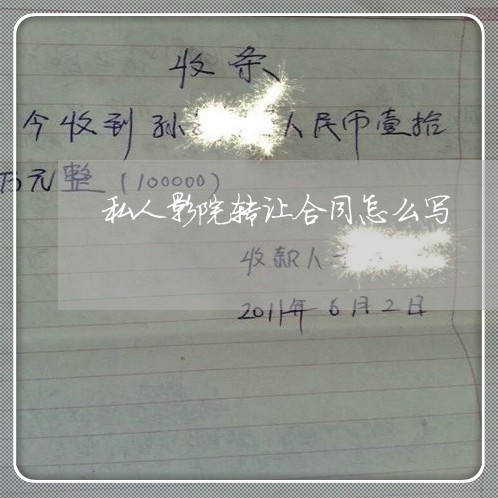 收条
今收到孙 人民币壹拾
万元整（100000）
私人影院转让合同怎么写
收款人
2011年6月2日